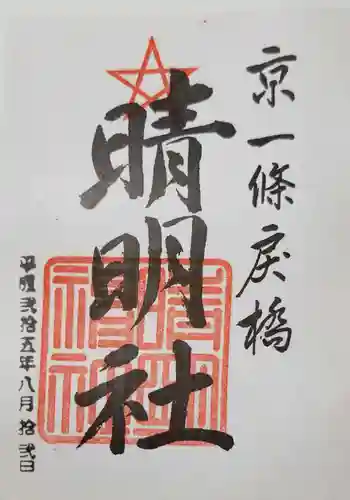 京一條戻橋
晴明社
晴明神社
平成弐拾五年八月拾弐日